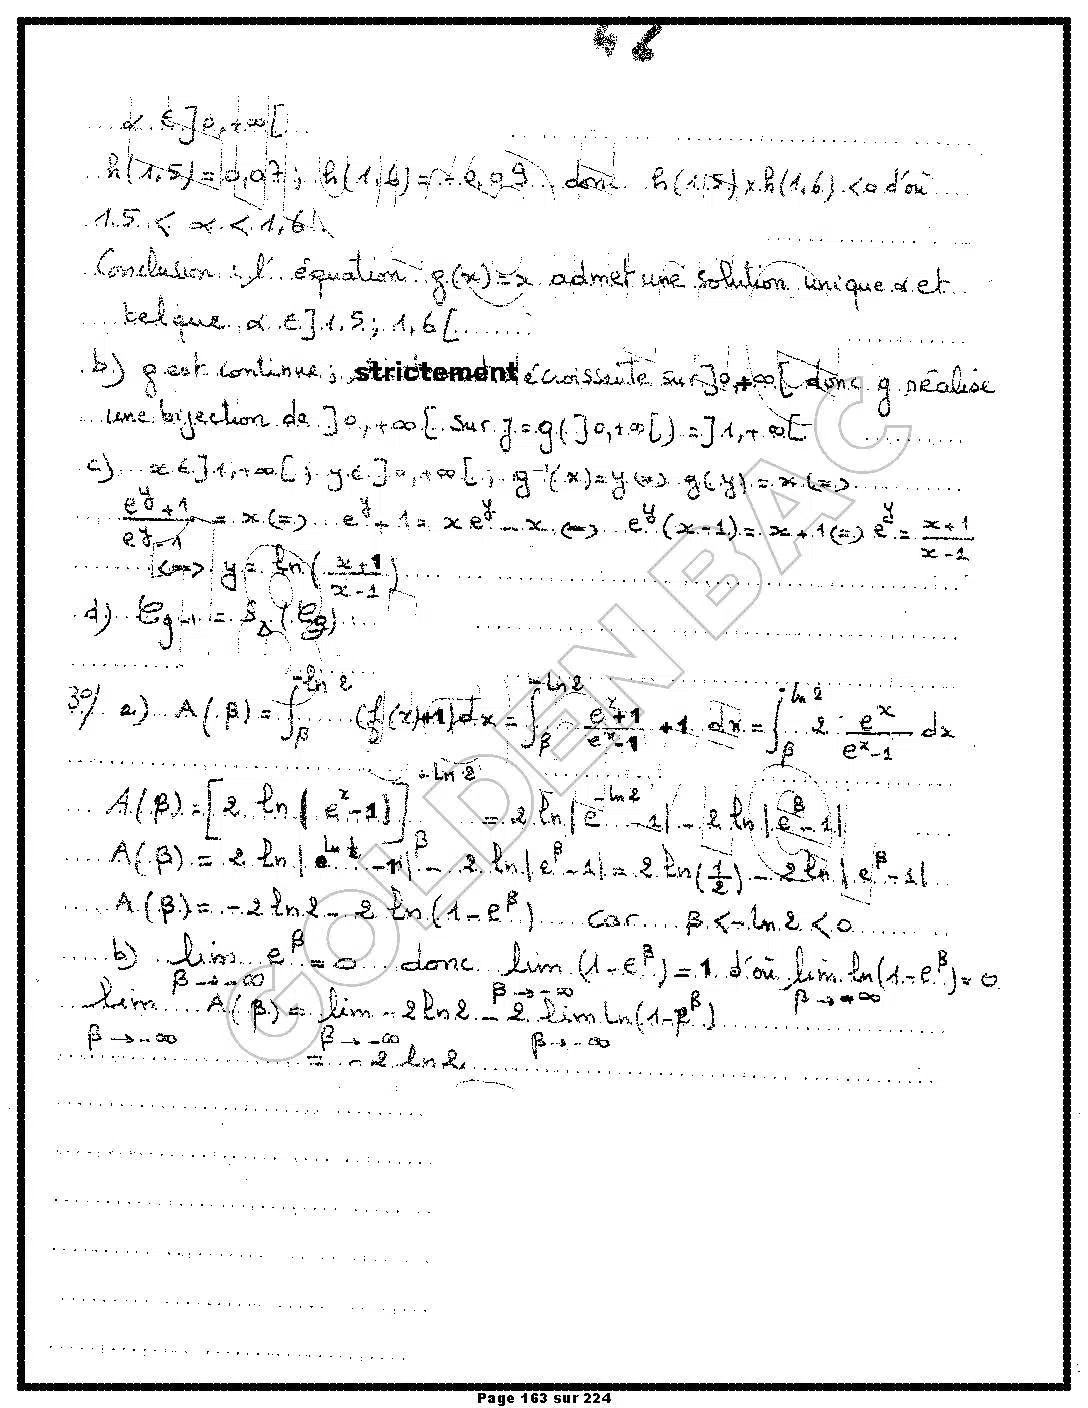 46
α ∈ ]0,+∞[
h(1,5) = 0,07 ; h(1,6) = -0,09 donc h(1,5) × h(1,6) < 0 d'où
1.5 < α < 1,6
Conclusion : l'équation g(x) = x admet une solution unique α et
telque α ∈ ]1.5 ; 1,6[
b) g est continue ; strictement écroissente sur ]0,+∞[ donc g réalise
une bijection de ]0,+∞[ sur J = g(]0,+∞[) = ]1,+∞[
c) x ∈ ]1,+∞[ ; y ∈ ]0,+∞[ ; g⁻¹(x) = y <=> g(y) = x <=>
(e^y + 1)/(e^y - 1) = x <=> e^y + 1 = x e^y - x <=> e^y (x-1) = x+1 <=> e^y = (x+1)/(x-1)
<=> y = ln((x+1)/(x-1))
d) C_{g⁻¹} = S_Δ (C_g)
3°/ a) A(β) = ∫_β^{-ln2} (f(x)+1) dx = ∫_β^{-ln2} (e^x+1)/(e^x-1) + 1 dx = ∫_β^{-ln2} 2 e^x/(e^x-1) dx
A(β) = [2 ln|e^x - 1|]_β^{-ln2} = 2 ln|e^{-ln2} - 1| - 2 ln|e^β - 1|
A(β) = 2 ln|e^{ln ½} - 1| - 2 ln|e^β - 1| = 2 ln(1/2) - 2 ln|e^β - 1|
A(β) = -2 ln2 - 2 ln(1 - e^β) car β < -ln2 < 0
b) lim_{β→-∞} e^β = 0 donc lim_{β→-∞} (1 - e^β) = 1 d'où lim_{β→-∞} ln(1 - e^β) = 0
lim_{β→-∞} A(β) = lim_{β→-∞} -2 ln2 - 2 lim_{β→-∞} ln(1 - e^β)
= -2 ln2
GOLDEN BAC
Page 163 sur 224